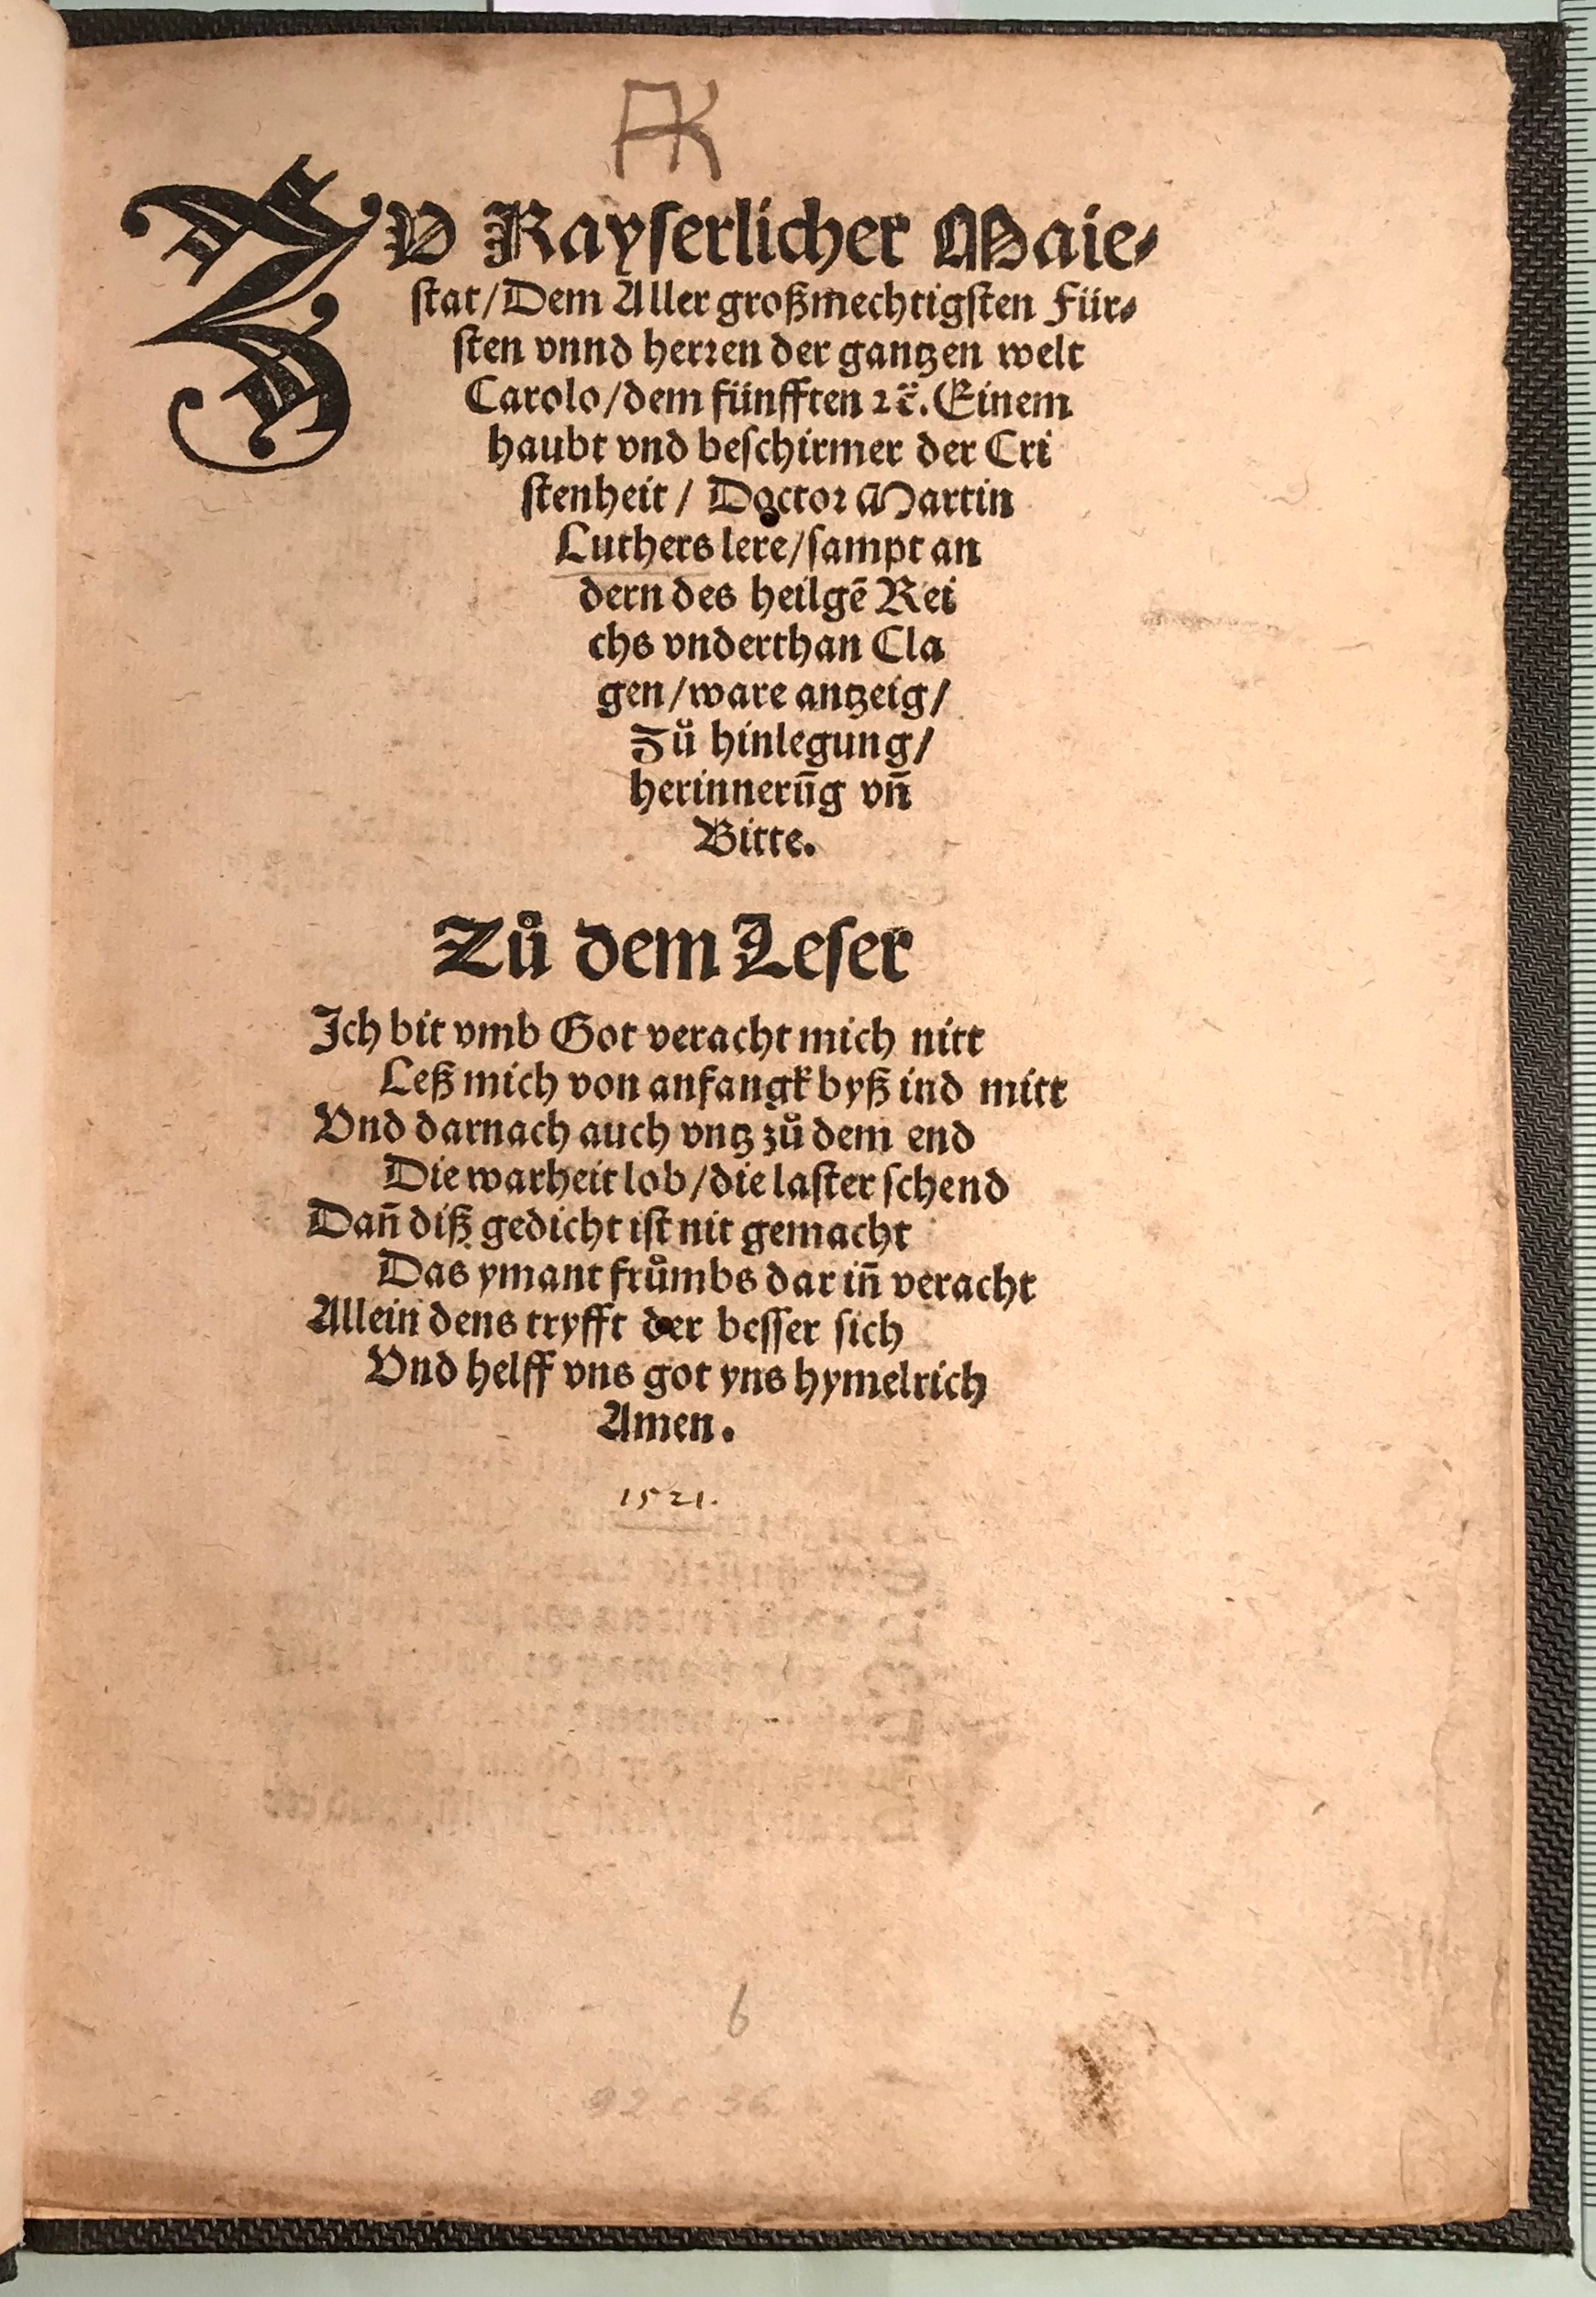 AK
ZV Kayserlicher Maie⸗
ſtat/Dem Aller großmechtigſten Für⸗
ſten vnnd herꝛen der gantzen welt
Carolo/dem fünfften ꝛc̈. Einem
haubt vnd beſchirmer der Cri
ſtenheit / Doctoꝛ Martin
Luthers lere/ſampt an
dern des heilgē Rei
chs vnderthan Cla
gen/ware antzeig/
Zů hinlegung/
herinnerūg vn̄
Bitte.
Zů dem Leſer
Ich bit vmb Got veracht mich nitt
Leß mich von anfangk byß ind mitt
Vnd darnach auch vntz zů dem end
Die warheit lob/die laſter ſchend
Dan̄ diß gedicht iſt nit gemacht
Das ymant frůmbs dar in̄ veracht
Allein dens tryfft der beſſer ſich
Vnd helff vns got yns hymelrich
Amen.
1521.
6
92 c 36